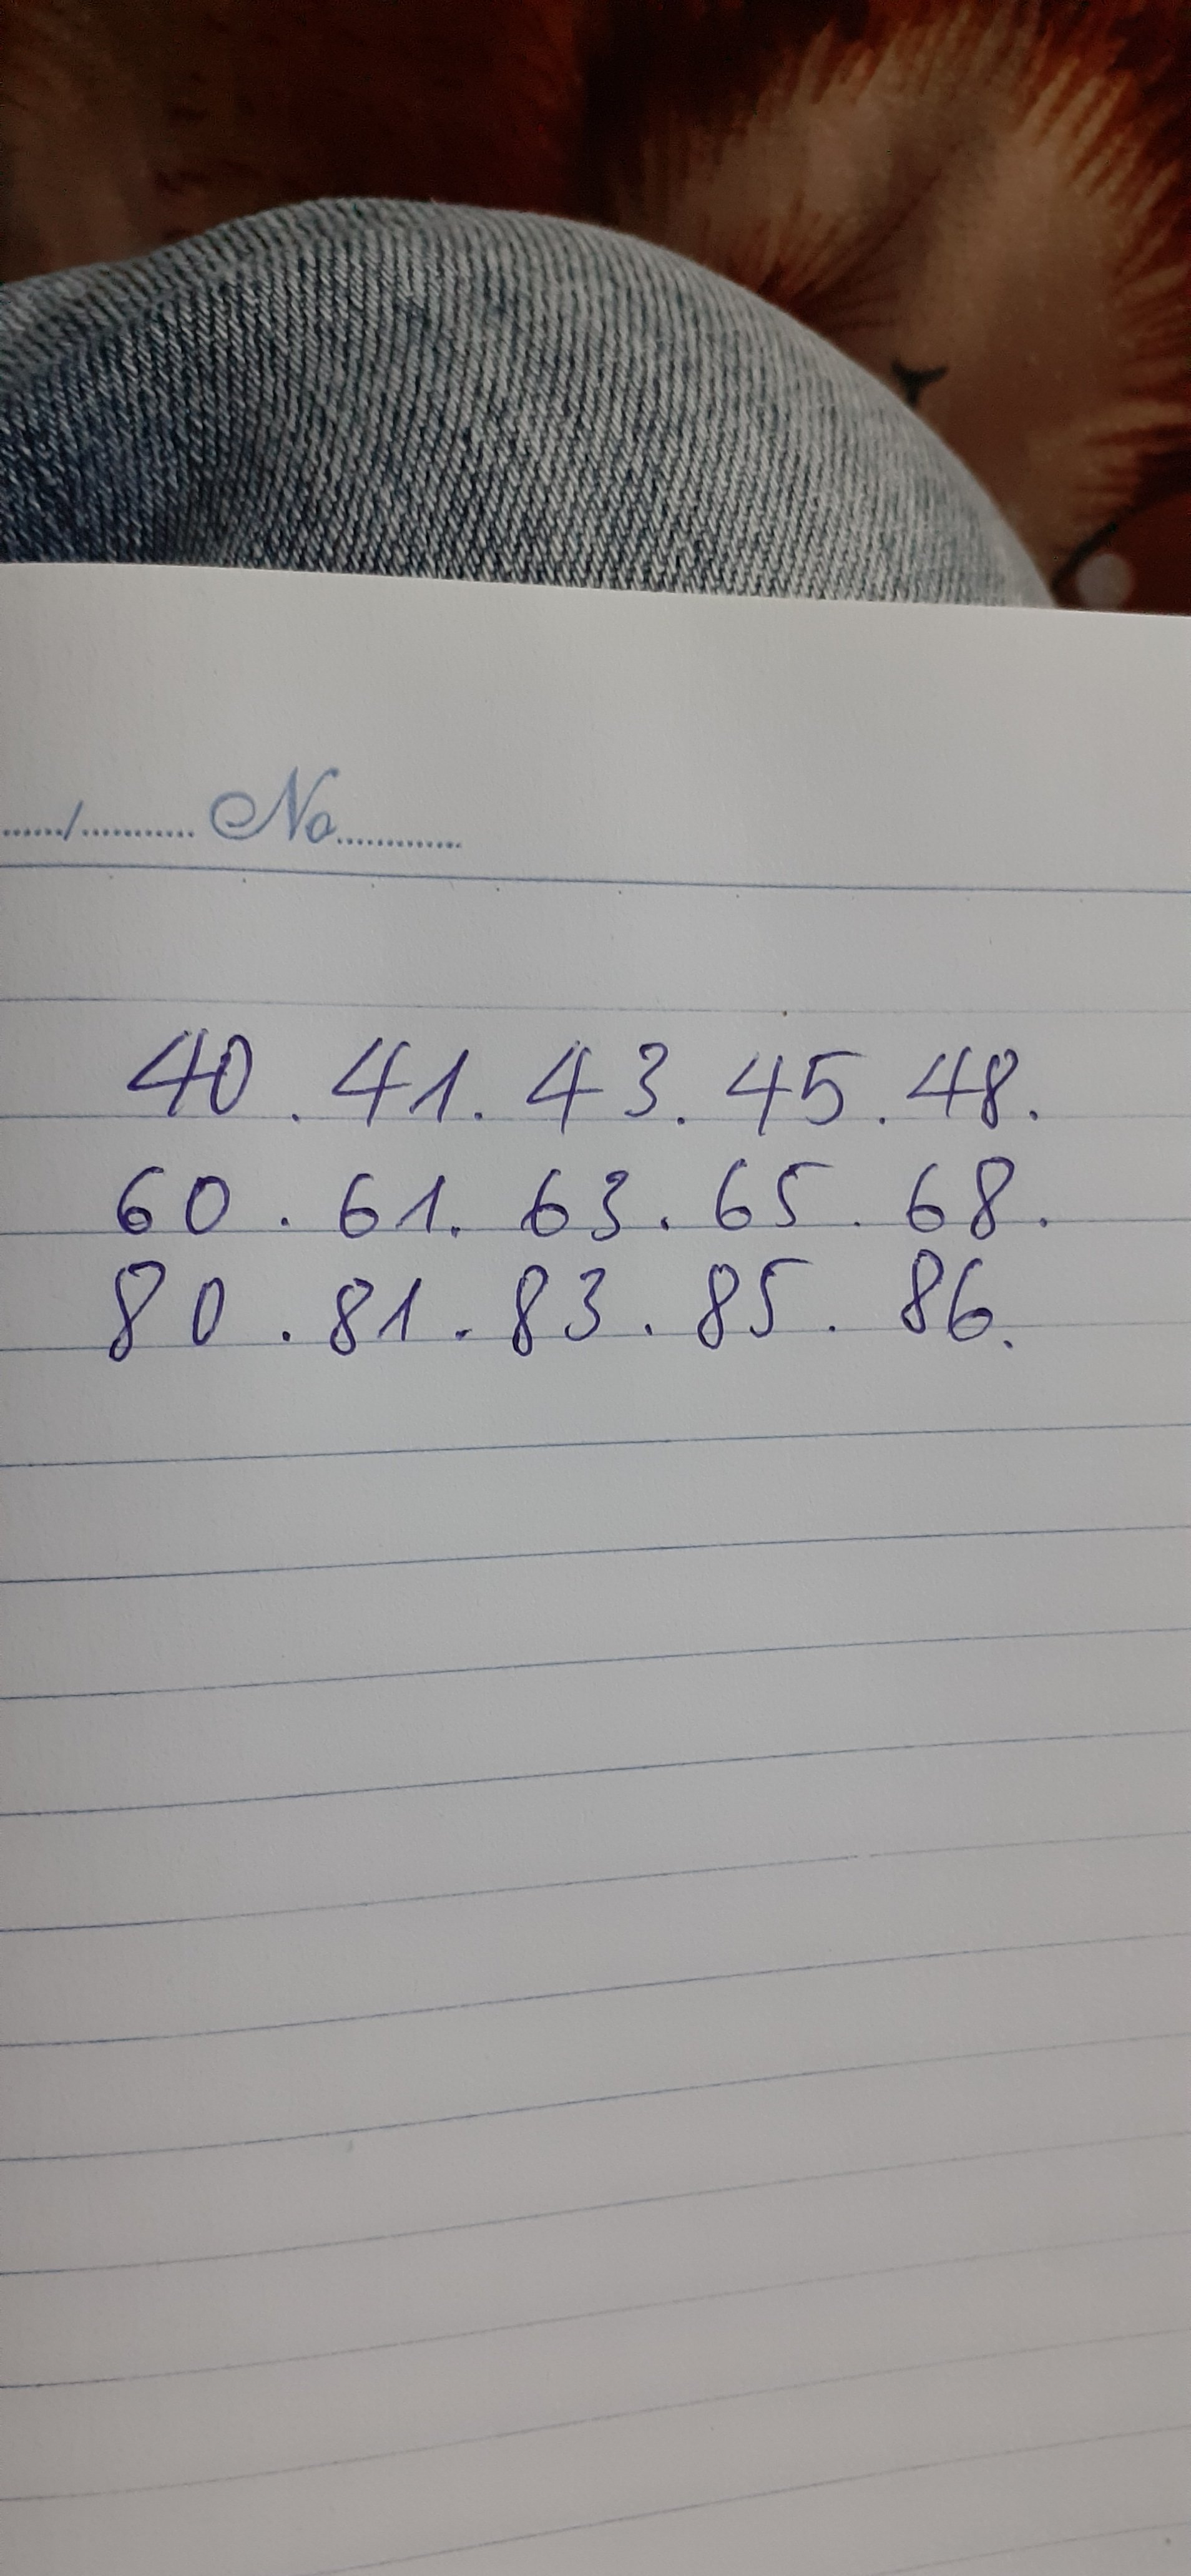 ....../........... No............
40 . 41. 43. 45 . 48.
60 . 61. 63. 65 . 68.
80 . 81. 83. 85 . 86.